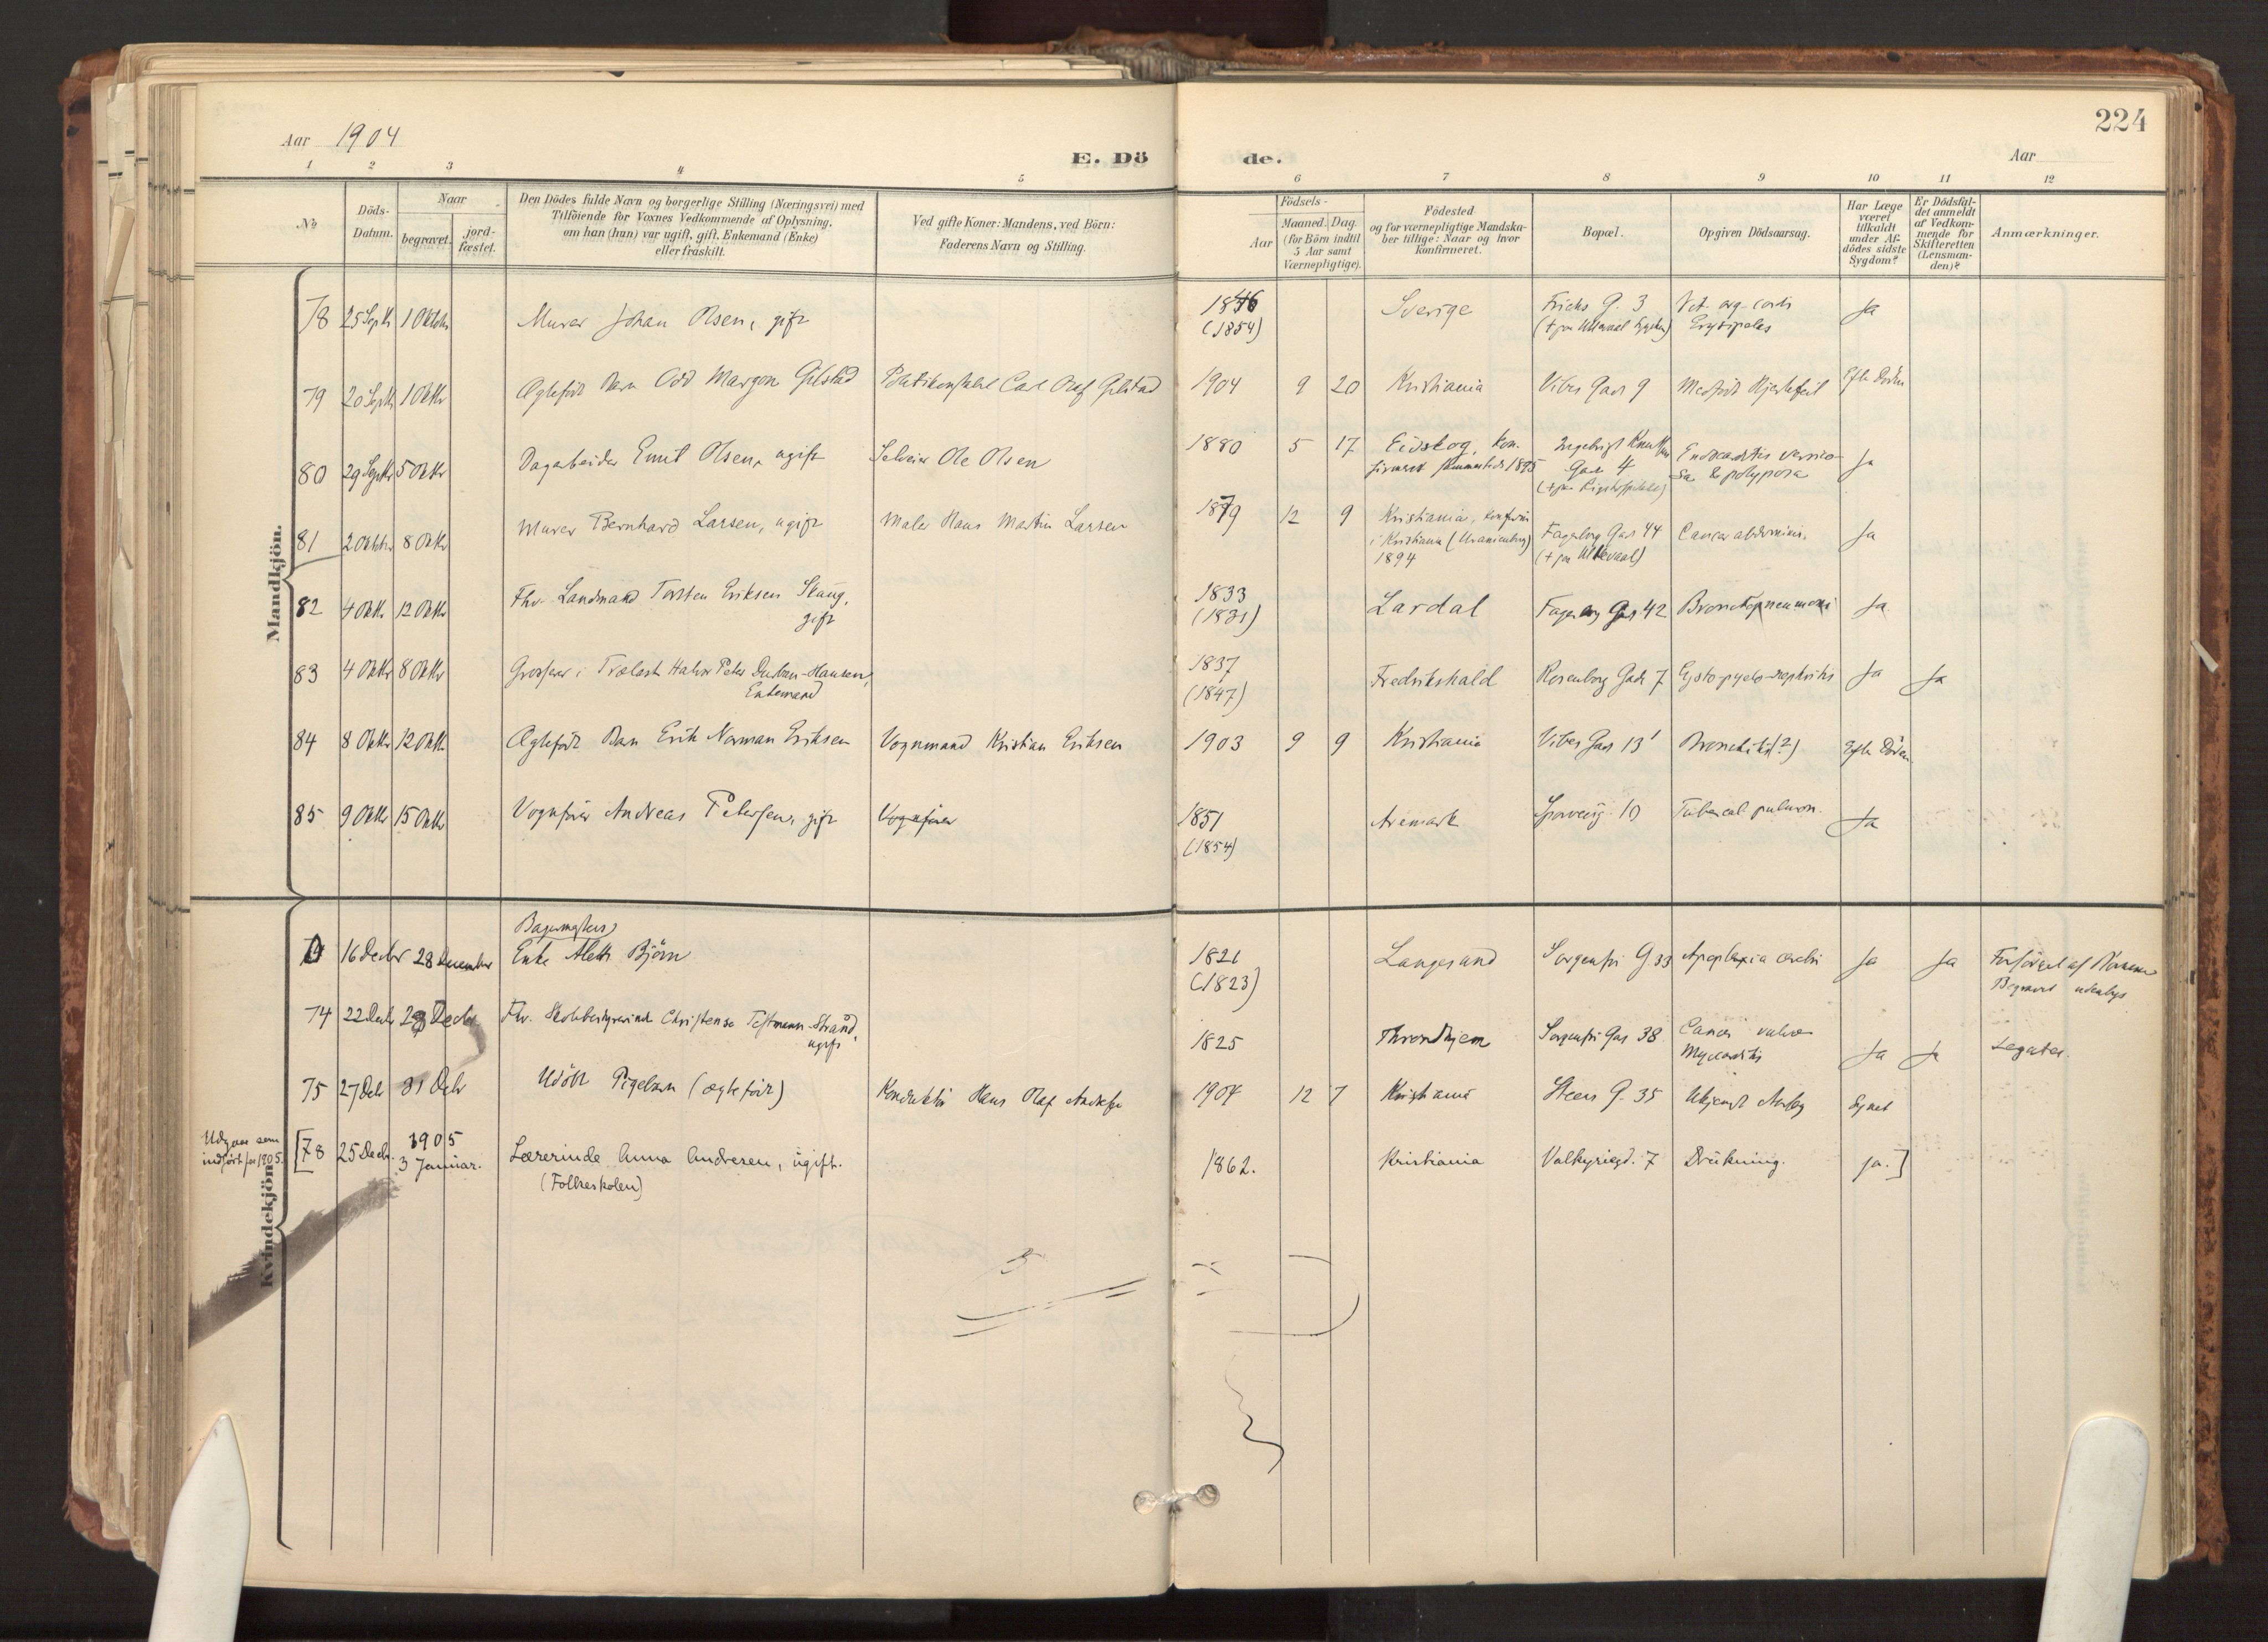 224
Aar 1904
E. Dö de.
Aar
1 2 3 4 5 6 7 8 9 10 11 12
No
Döds-
Datum.
Naar
begravet. jord-
fæstet.
Den Dödes fulde Navn og borgerlige Stilling (Næringsvei) med
Tilföiende for Voxnes Vedkommende af Oplysning,
om han (hun) var ugift, gift, Enkemand (Enke)
eller fraskilt.
Ved gifte Koner: Mandens, ved Börn:
Faderens Navn og Stilling.
Födsels-
Aar
Maaned. Dag.
(for Börn indtil
5 Aar samt
Værnepligtige).
Födested
og for værnepligtige Mandska-
ber tillige: Naar og hvor
konfirmeret.
Bopæl.
Opgiven Dödsaarsag.
Har Læge
været
tilkaldt
under Af-
dödes sidste
Sygdom?
Er Dödsfal-
det anmeldt
af Vedkom-
mende for
Skifteretten
(Lensman-
den)?
Anmærkninger.
Mandkjön.
78 25 Septr 1 Oktobr Murer Johan Olsen, gift 1846 Sverige Frichs G. 3 Vit. org. cordis Ja
(1854) (+ paa Ullevaal Sygehus) Erysipelas
79 20 Septr 1 Oktr Ægteföd Barn Odd Margon Gilstad Politikonstabel Carl Olaf Gilstad 1904 9 20 Kristiania Vibes Gade 9 Medfödt Hjertefeil Efter Döden
80 29 Septr 5 Oktr Dagarbeider Emil Olsen, ugift Selveier Ole Olsen 1880 5 17 Eidskog, kon-
firmeret sammesteds 1895 Ingebrigt Knutsens
Gade 4
(+ paa Rigshospitalet) Endocarditis verruco-
sa & polyposa Ja
81 2 Oktobr 8 Oktr Murer Bernhard Larsen, ugift Maler Hans Martin Larsen 1879 12 9 Kristiania, konfirm.
i Kristiania (Uranienborg)
1894 Fagerborg Gade 44
(+ paa Ullevaal) Cancer abdominis. Ja
82 4 Oktr 12 Oktr Fhv. Landmand Torsten Eriksen Skaug,
gift 1833
(1831) Lardal Fagerborg Gade 42 Bronchopneumoni Ja
83 4 Oktr 8 Oktr Grosserer i Trælast Halvor Peter Durban-Hansen,
Enkemand 1837
(1847) Fredrikshald Rosenborg Gade 7 Cysto-pyelo-nephritis Ja Ja
84 8 Oktr 12 Oktr Ægteföd Barn Erik Norman Eriksen Vognmand Kristian Eriksen 1903 9 9 Kristiania Vibes Gade 13 Bronchitis (?) Efter Döden
85 9 Oktr 15 Oktr Vognförer Andreas Petersen, gift Vognförer 1851
(1854) Aremark Sporveisg. 10 Tubercul. pulmon. Ja
Kvindekjön.
16 Decbr 28 December Bagermesters
Enke Aleth Björn 1821
(1823) Langesund Sorgenfri G. 33 Apoplexia cerebri Ja Ja
Begravet udenbys
74 22 Decbr 28 Decbr Fhv. Skolebestyrerinde Christense Testmann-Strand,
ugift 1825 Throndhjem Sorgenfri Gade 38 Cancer vulvæ
Myocarditis Ja Ja Legater.
75 27 Decbr 31 Decbr Udöbt Pigebarn (ægteföd) Konduktör Hans Olaf 1904 12 7 Kristiania Steens G. 35 Ukjendt Aarsag Synet
Udgaar som
indfört for 1905.
[78 25 Decbr. 1905
3 Januar. Lærerinde Anna Andresen, ugift.
(Folkeskolen) 1862. Kristiania Valkyriegd. 7 Drukning. ja.]